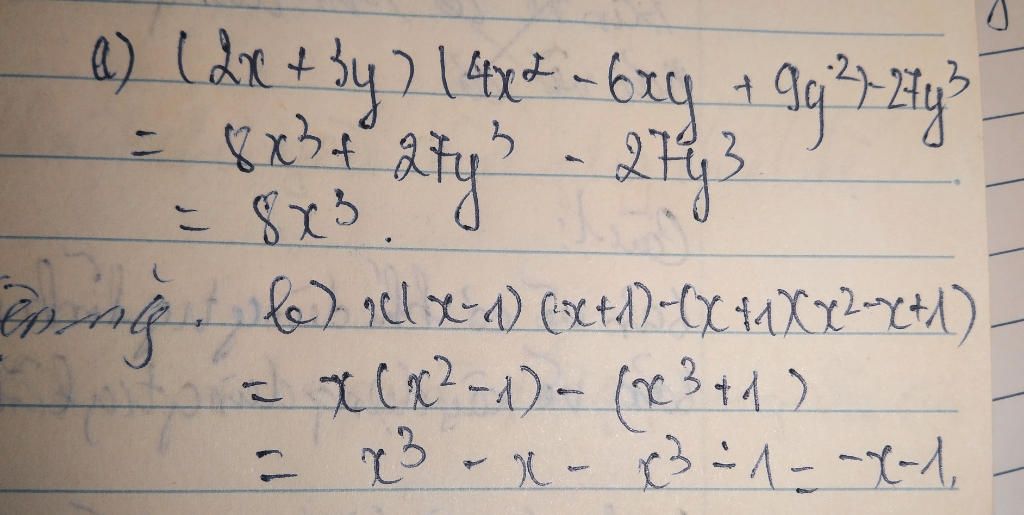 a) (2x + 3y) (4x² - 6xy + 9y²) - 27y³
= 8x³ + 27y³ - 27y³
= 8x³.
b) x(x-1) (x+1) - (x+1)(x²-x+1)
= x(x²-1) - (x³+1)
= x³ - x - x³ - 1 = -x-1.